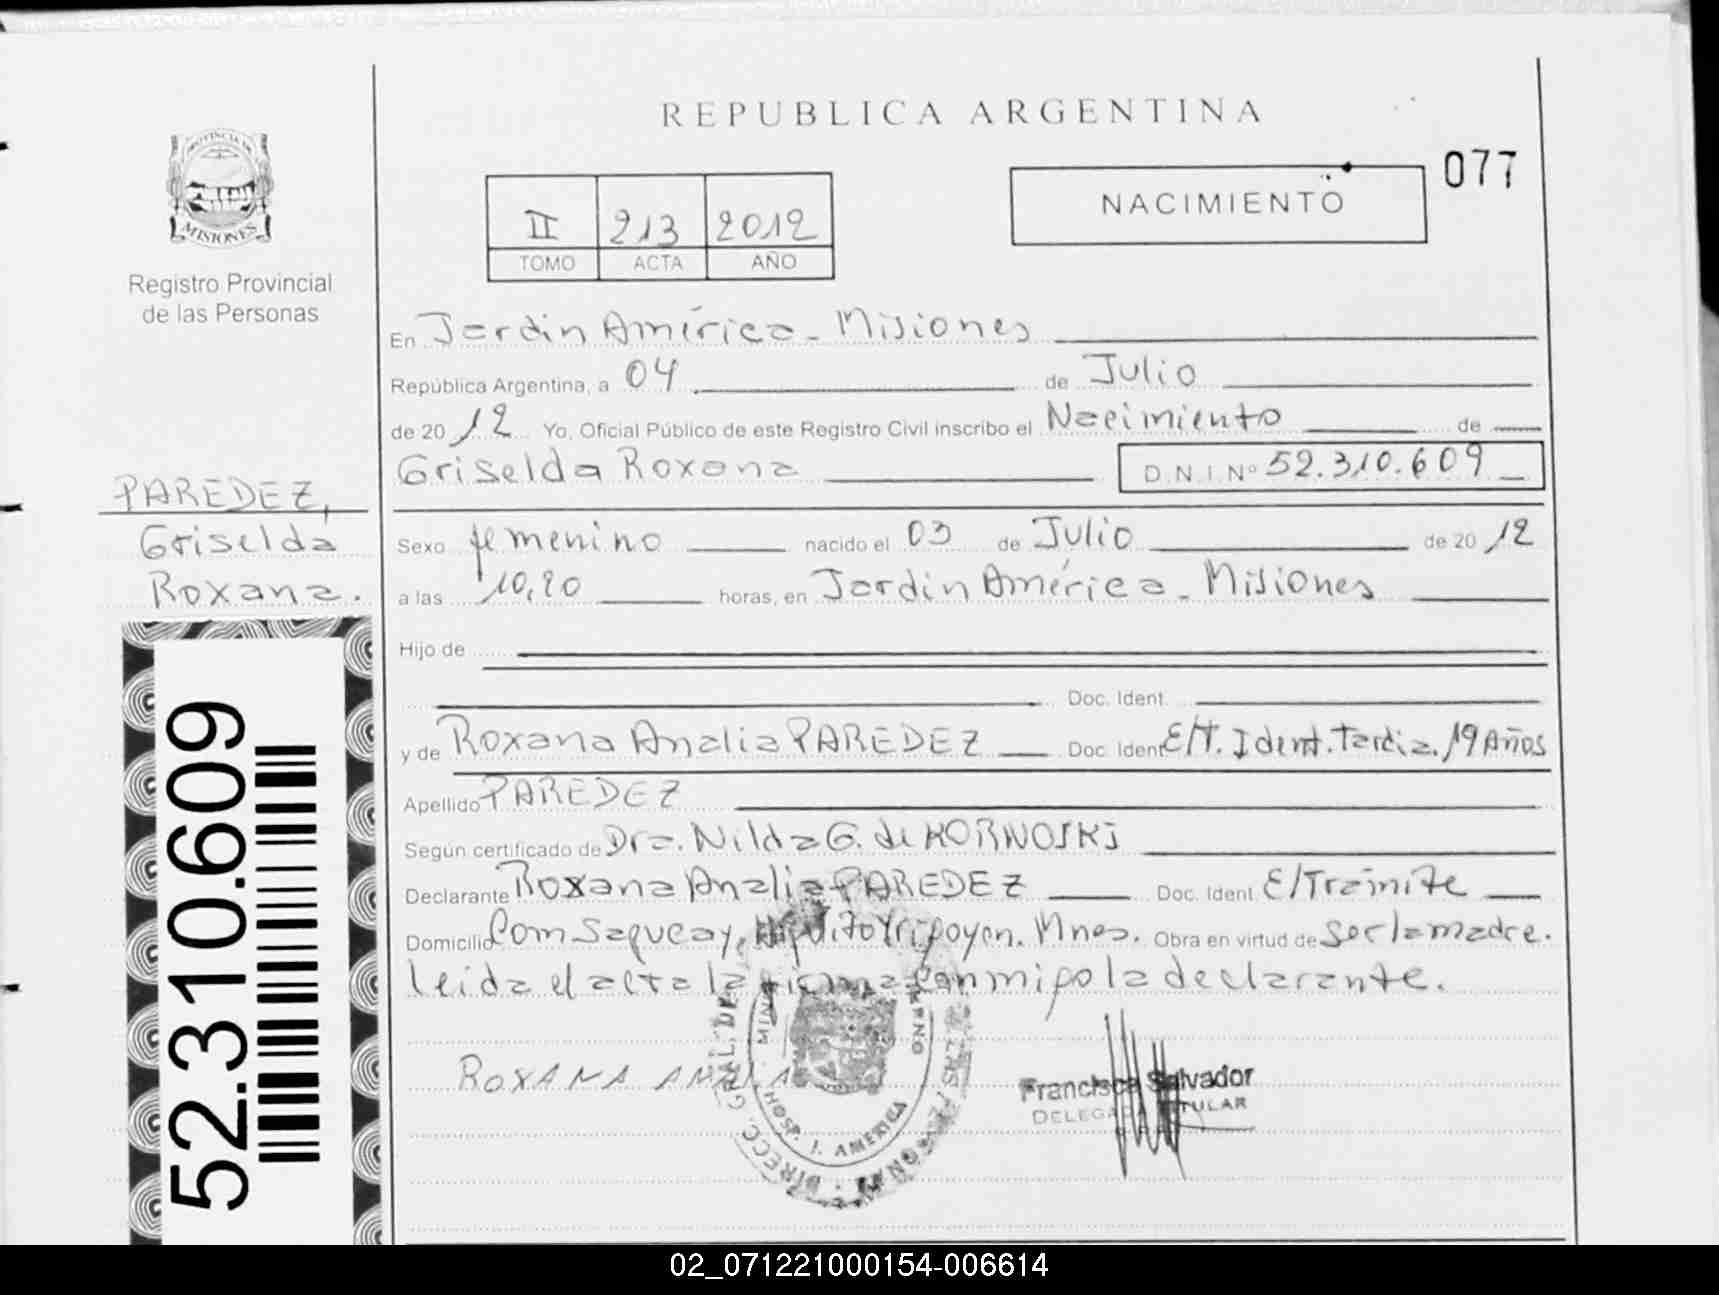 REPUBLICA ARGENTINA
PROVINCIA DE
MISIONES
Registro Provincial
de las Personas
II 213 2012
TOMO ACTA AÑO
NACIMIENTO
077
En Jardin América - Misiones
República Argentina, a 04 de Julio
de 2012 Yo, Oficial Público de este Registro Civil inscribo el Nacimiento de
Griselda Roxana D.N.I. Nº 52.310.609
PAREDEZ,
Griselda
Roxana.
52.310.609
Sexo femenino nacido el 03 de Julio de 2012
a las 10,20 horas, en Jardin América - Misiones
Hijo de
Doc. Ident.
y de Roxana Analia PAREDEZ Doc. Ident. E/t. Ident. tardia. 19 Años
Apellido PAREDEZ
Según certificado de Dra. Nilda G. de KORNOSKI
Declarante Roxana Analia PAREDEZ Doc. Ident. E/Tramite
Domicilio Com Sapucay, Hipólito Yrigoyen. Mnes. Obra en virtud de ser la madre.
leida el acta la firma con migo la declarante.
ROXANA
HOSP. J. AMERICA
Francisca Salvador
DELEGADA TITULAR
02_071221000154-006614